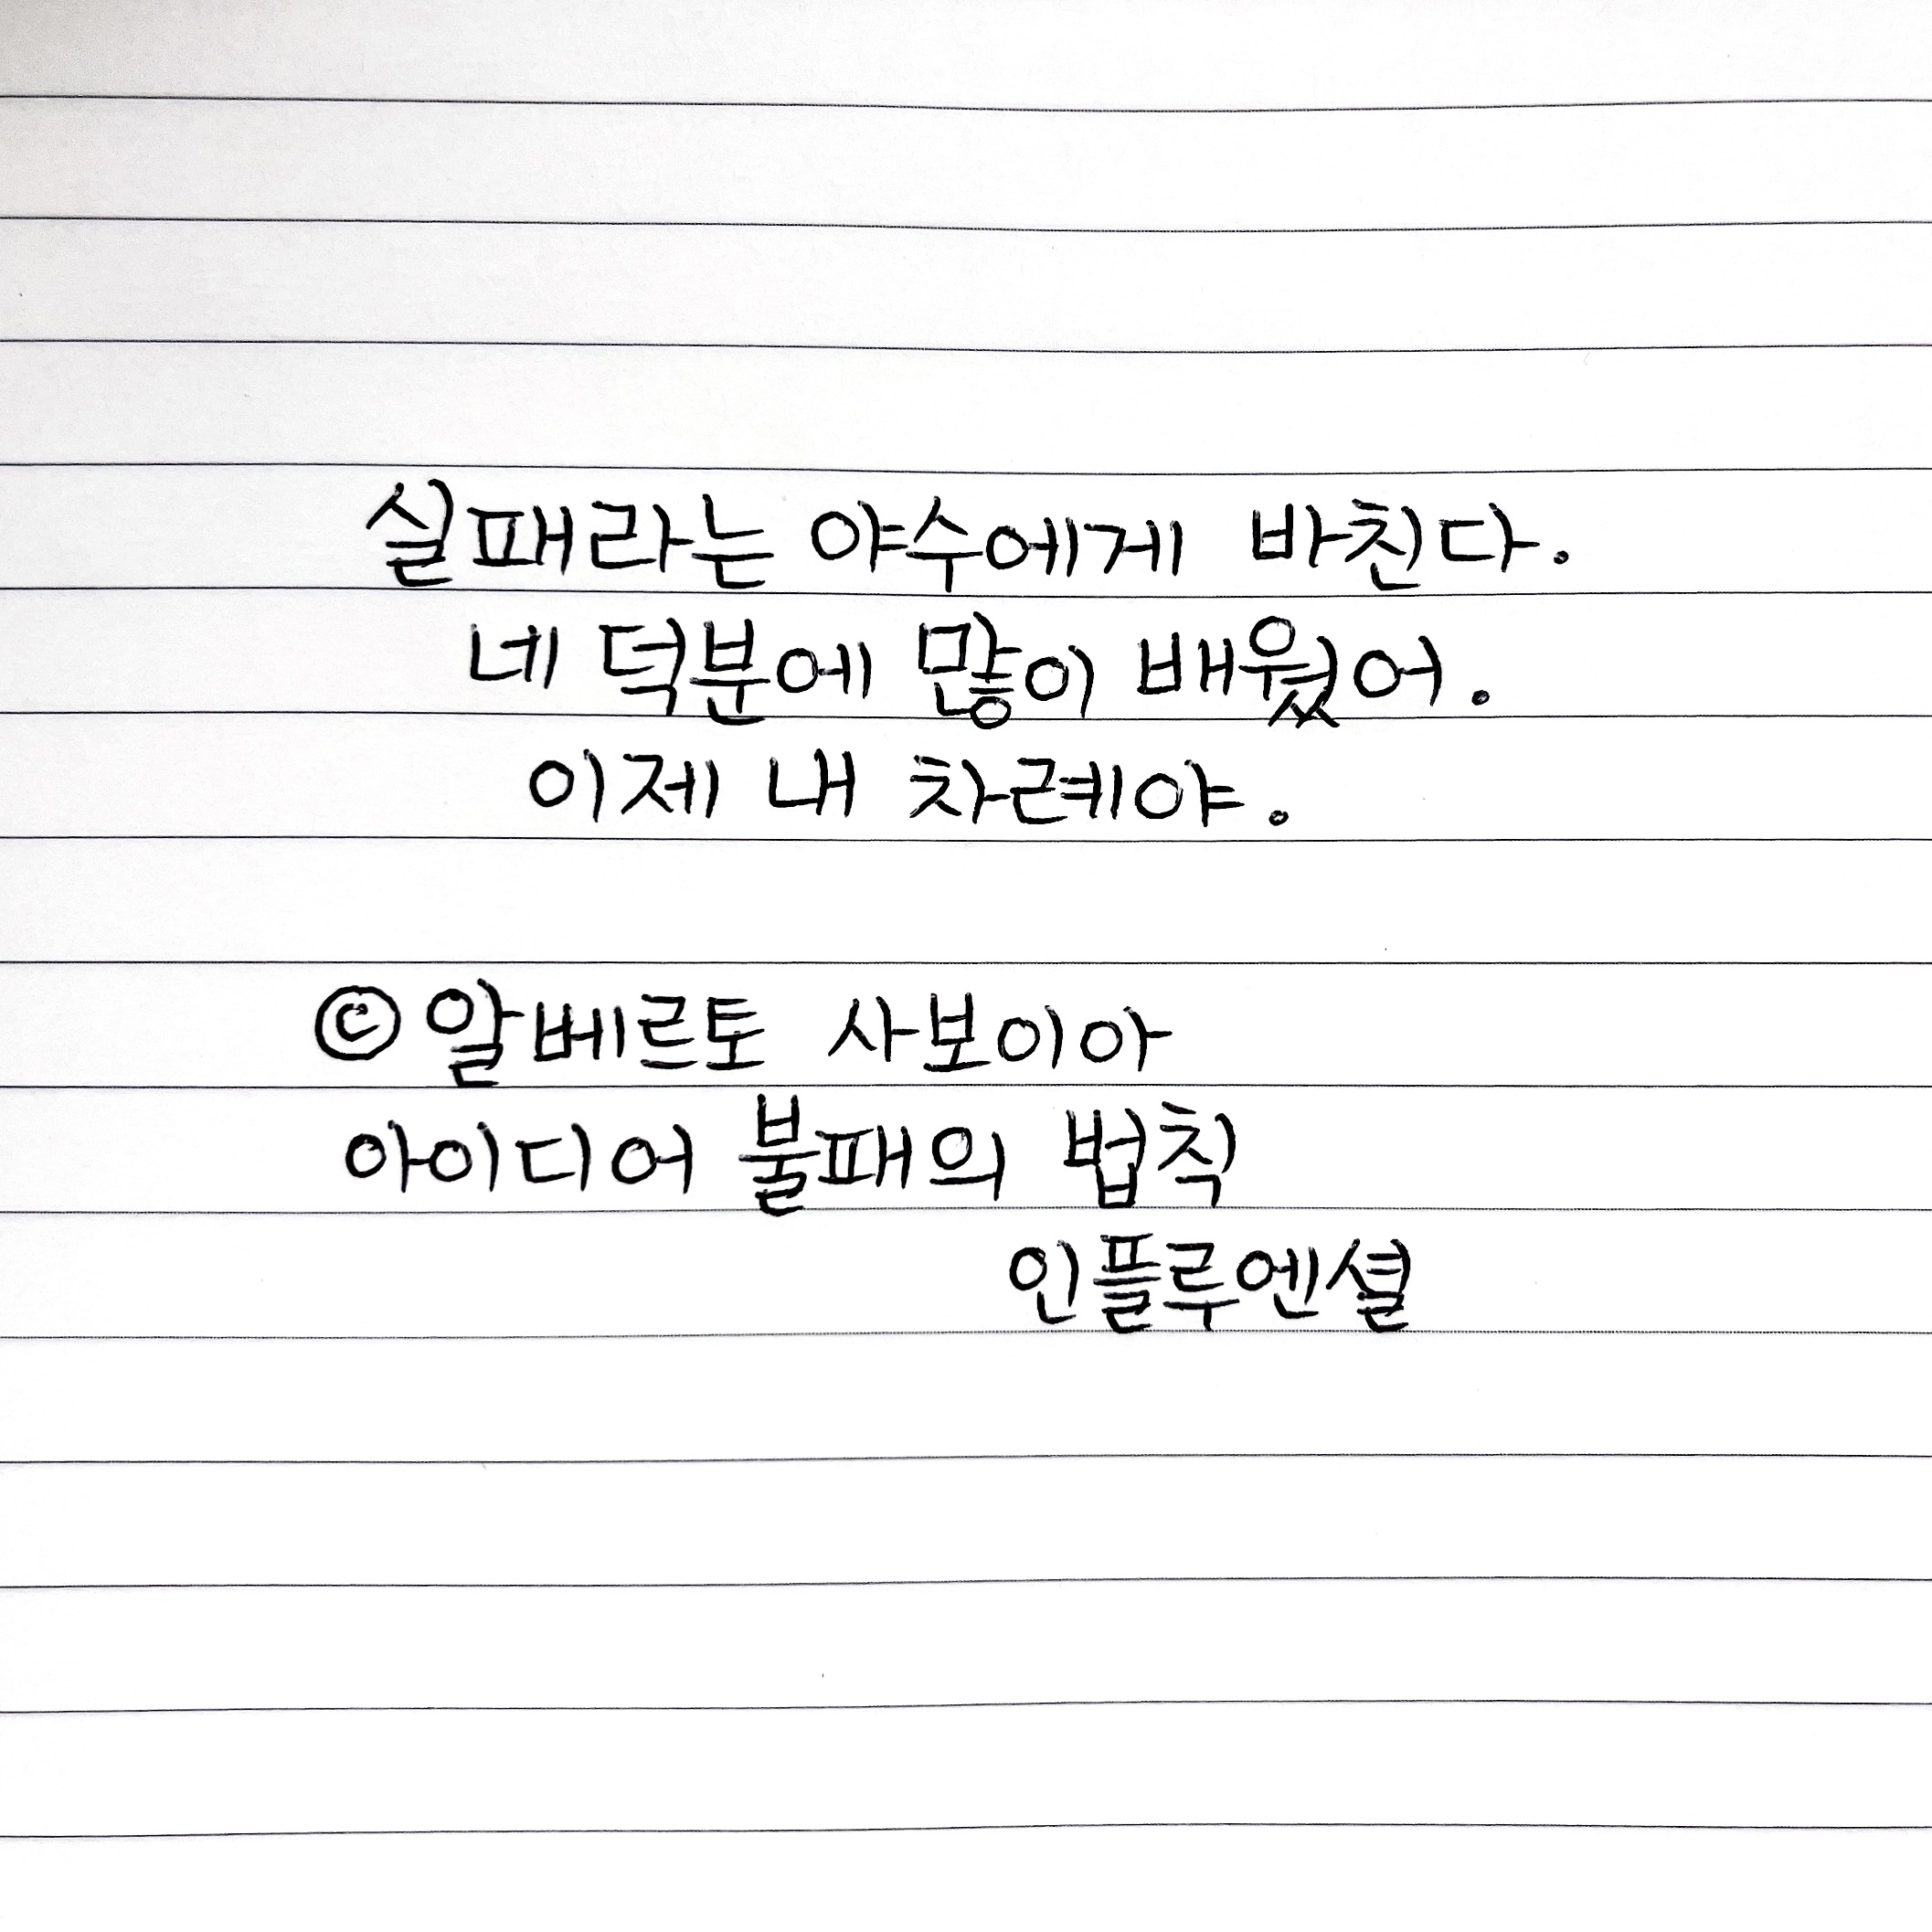 실패라는 야수에게 바친다.
네 덕분에 많이 배웠어.
이제 내 차례야.
ⓒ알베르토 사보이아
아이디어 불패의 법칙
인플루엔셜